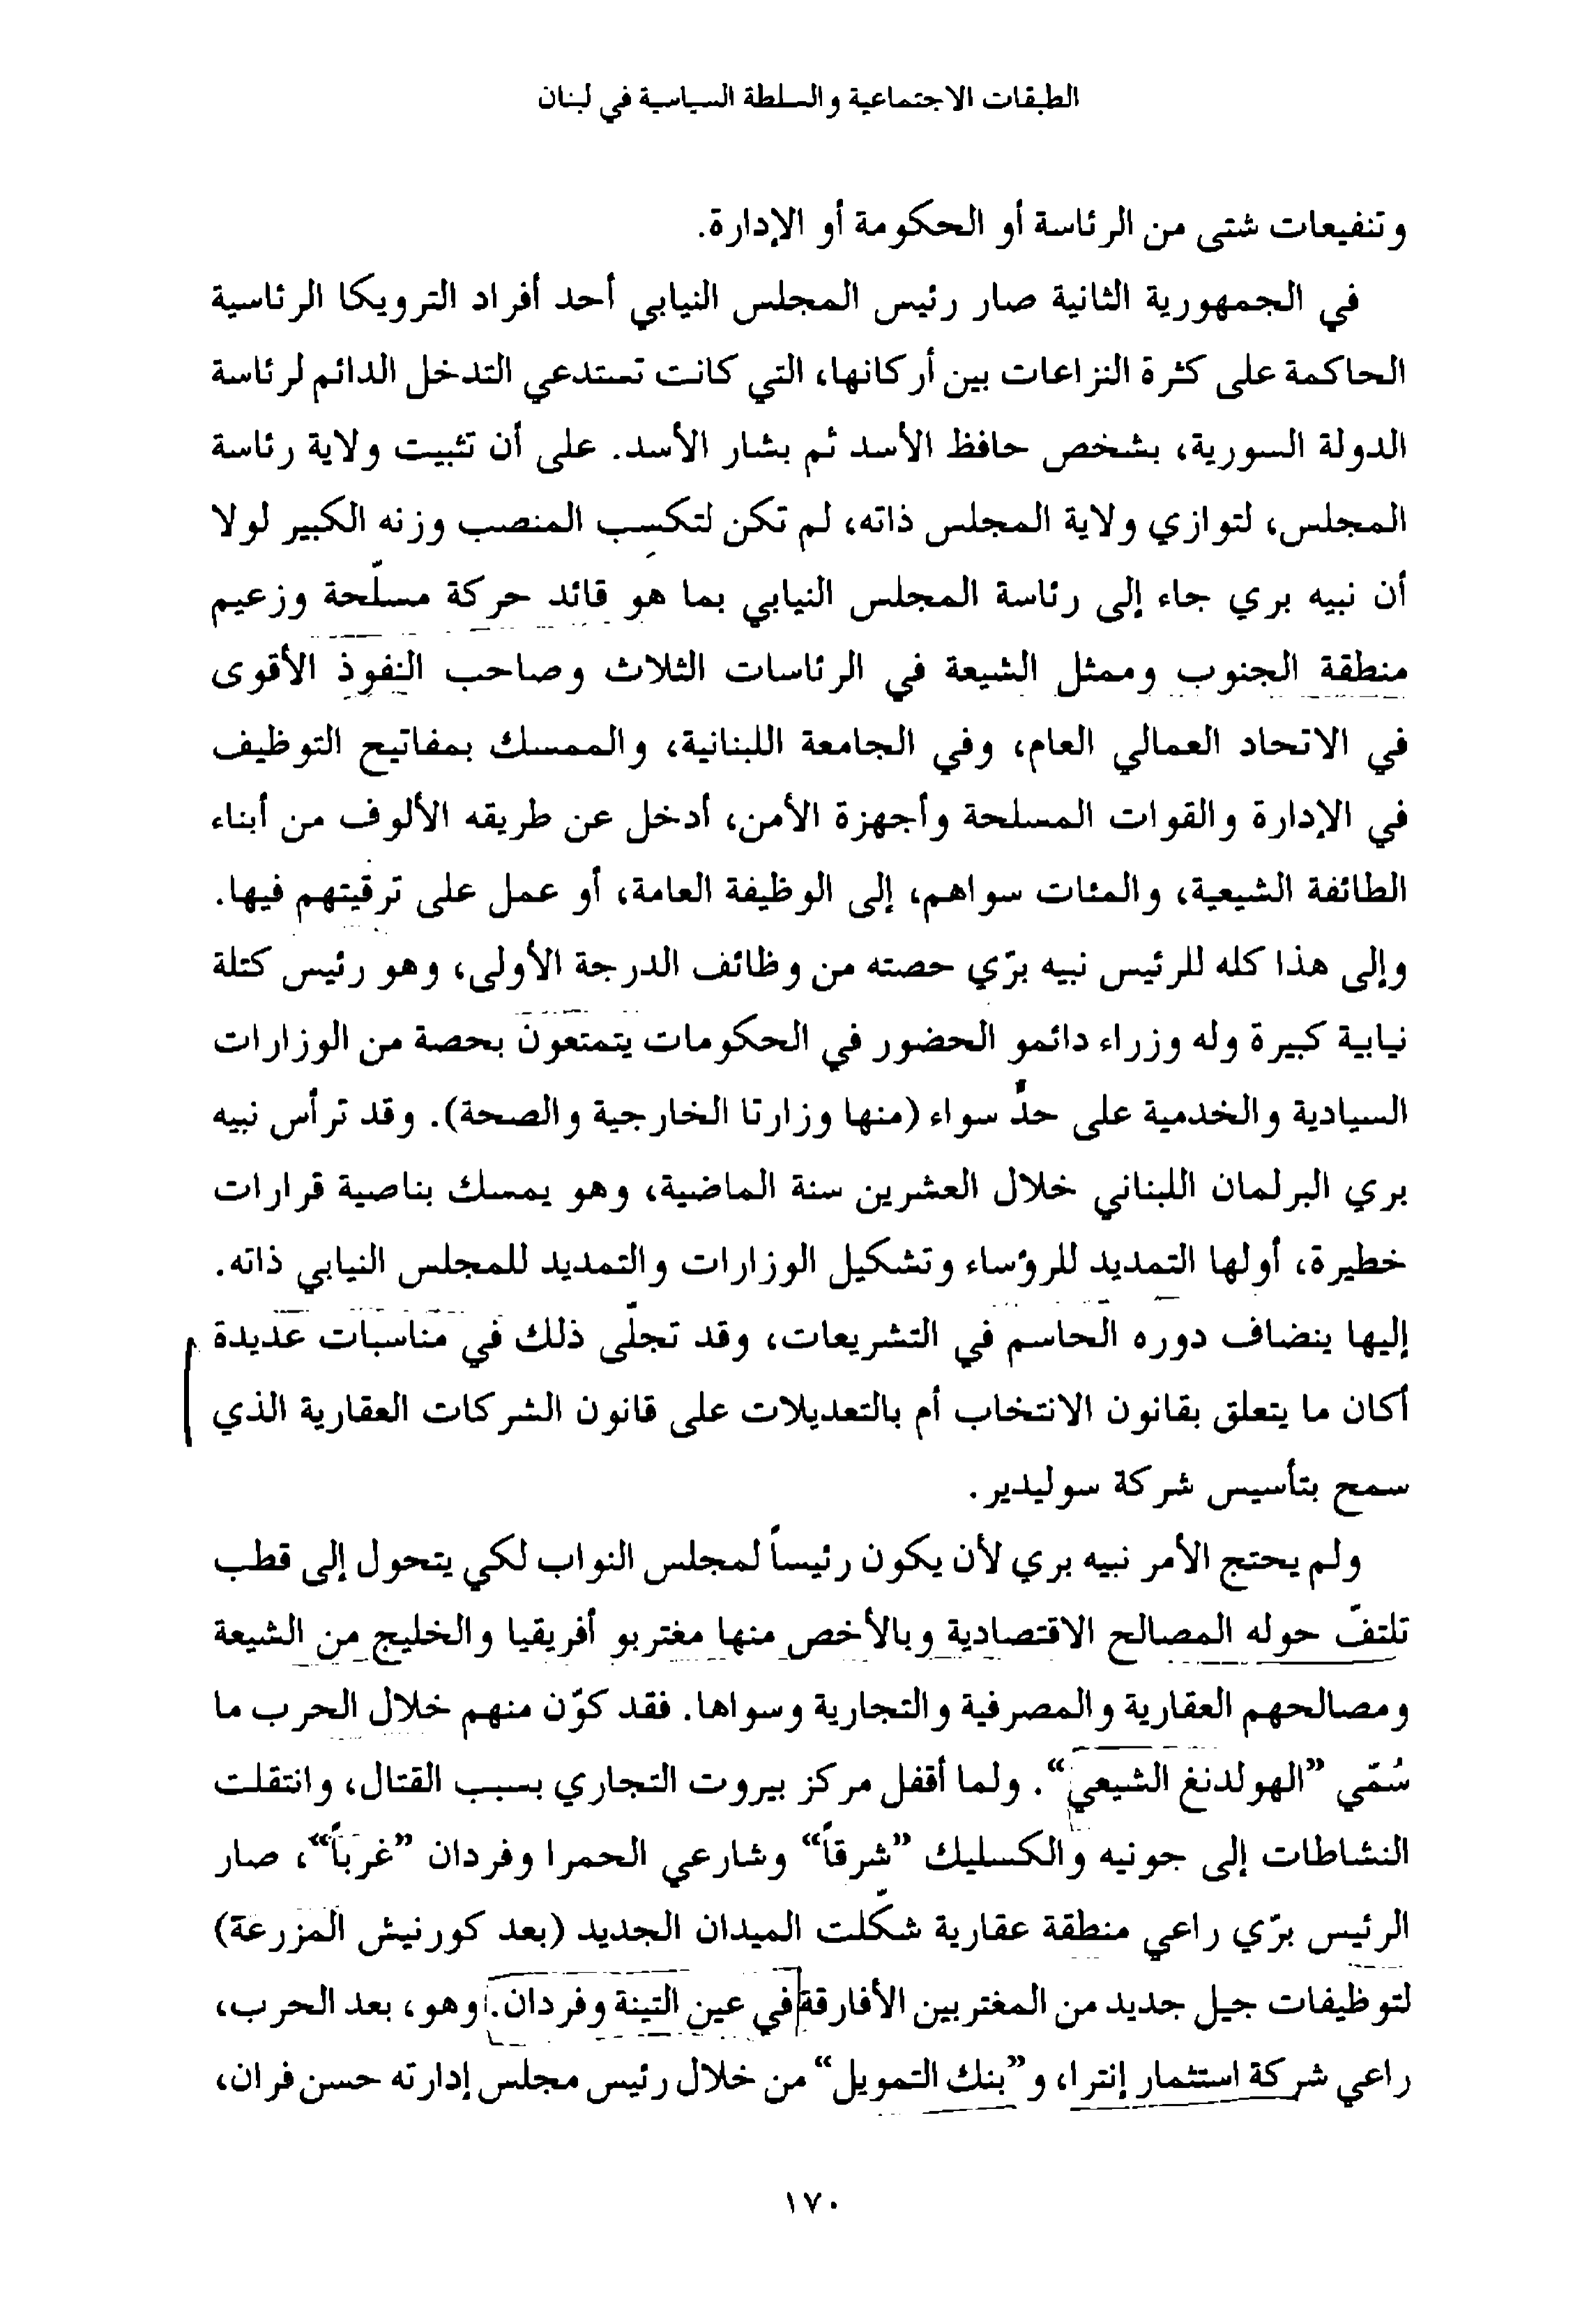 الطبقات الاجتماعية والسلطة السياسية في لبنان
وتنفيعات شتى من الرئاسة أو الحكومة أو الإدارة.
في الجمهورية الثانية صار رئيس المجلس النيابي أحد أفراد الترويكا الرئاسية
الحاكمة على كثرة النزاعات بين أركانها، التي كانت تستدعي التدخل الدائم لرئاسة
الدولة السورية، بشخص حافظ الأسد ثم بشار الأسد. على أن تثبيت ولاية رئاسة
المجلس، لتوازي ولاية المجلس ذاته، لم تكن لتكسِب المنصب وزنه الكبير لولا
أن نبيه بري جاء إلى رئاسة المجلس النيابي بما هو قائد حركة مسلّحة وزعيم
منطقة الجنوب وممثل الشيعة في الرئاسات الثلاث وصاحب النفوذ الأقوى
في الاتحاد العمالي العام، وفي الجامعة اللبنانية، والممسك بمفاتيح التوظيف
في الإدارة والقوات المسلحة وأجهزة الأمن، أدخل عن طريقه الألوف من أبناء
الطائفة الشيعية، والمئات سواهم، إلى الوظيفة العامة، أو عمل على ترقيتهم فيها.
وإلى هذا كله للرئيس نبيه برّي حصته من وظائف الدرجة الأولى، وهو رئيس كتلة
نيابية كبيرة وله وزراء دائمو الحضور في الحكومات يتمتعون بحصة من الوزارات
السيادية والخدمية على حدّ سواء (منها وزارتا الخارجية والصحة). وقد ترأس نبيه
بري البرلمان اللبناني خلال العشرين سنة الماضية، وهو يمسك بناصية قرارات
خطيرة، أولها التمديد للرؤساء وتشكيل الوزارات والتمديد للمجلس النيابي ذاته.
إليها ينضاف دوره الحاسم في التشريعات، وقد تجلّى ذلك في مناسبات عديدة
أكان ما يتعلق بقانون الانتخاب أم بالتعديلات على قانون الشركات العقارية الذي
سمح بتأسيس شركة سوليدير.
ولم يحتج الأمر نبيه بري لأن يكون رئيساً لمجلس النواب لكي يتحول إلى قطب
تلتفّ حوله المصالح الاقتصادية وبالأخص منها مغتربو أفريقيا والخليج من الشيعة
ومصالحهم العقارية والمصرفية والتجارية وسواها. فقد كوّن منهم خلال الحرب ما
سُمّي ”الهولدنغ الشيعي“. ولما أقفل مركز بيروت التجاري بسبب القتال، وانتقلت
النشاطات إلى جونيه والكسليك ”شرقاً“ وشارعي الحمرا وفردان ”غرباً“، صار
الرئيس برّي راعي منطقة عقارية شكّلت الميدان الجديد (بعد كورنيش المزرعة)
لتوظيفات جيل جديد من المغتربين الأفارقة في عين التينة وفردان. وهو، بعد الحرب،
راعي شركة استثمار إنترا، و”بنك التمويل“ من خلال رئيس مجلس إدارته حسن فران،
١٧٠